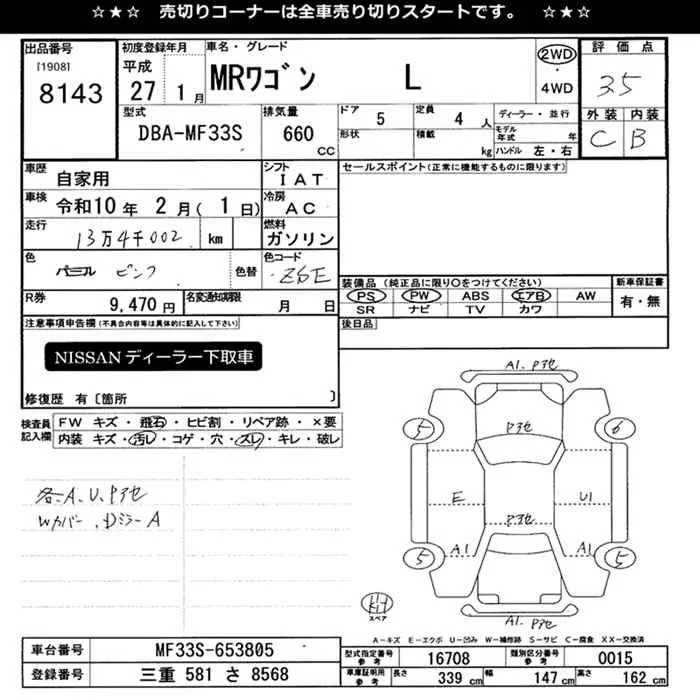 ☆★☆ 売切りコーナーは全車売り切りスタートです。 ☆★☆
出品番号
[1908]
8143
初度登録年月
平成
27 1月
車名・グレード
MRワゴン L
2WD
4WD
評価点
3.5
外装 内装
C B
型式
DBA-MF33S
排気量
660 CC
ドア 5
形状
定員 4 人
積載 kg
ディーラー・並行
モデル年式 年
ハンドル 左・右
車歴
自家用
シフト
IAT
車検
令和10年 2月( 1日)
冷房
AC
走行
13万4千002 km
燃料
ガソリン
色
パール ピンク
色替
色コード
Z6E
R券
9,470円
名変通知期限
月 日
セールスポイント(正常に機能するものに限ります)
装備品 (純正品に限り○をつけてください)
PS PW ABS エアB AW
SR ナビ TV カワ
新車保証書
有・無
後日品
注意事項申告欄(不具合内容等は具体的に記入して下さい)
NISSANディーラー下取車
修復歴 有〔箇所 〕
検査員記入欄
FW キズ・飛石・ヒビ割・リペア跡・×要
内装 キズ・汚レ・コゲ・穴・スレ・キレ・破レ
各、A、U、Pアセ
Wカバー、DミラーA
A1. Pアセ
Pアセ
5 6
E U1
Pアセ
A1 A1
5 5
スペア
A1. Pアセ
A-キズ E-エクボ U-凹み W-補修跡 S-サビ C-腐食 XX-交換済
車台番号 MF33S-653805
登録番号 三重 581 さ 8568
型式指定番号 参考 16708 類別区分番号 参考 0015
車庫証明用 参考 長さ 339 cm 幅 147 cm 高さ 162 cm